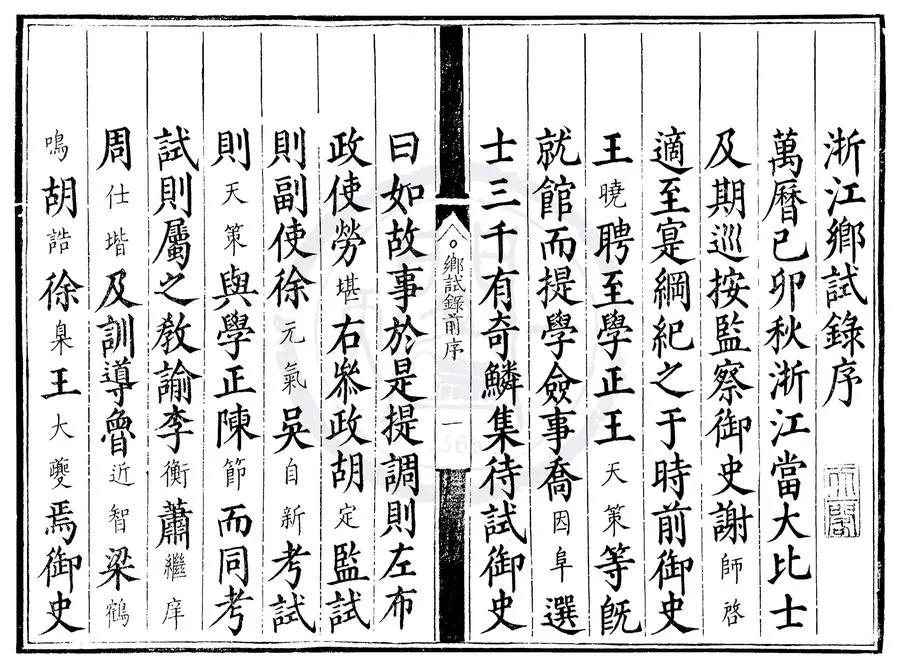 浙江鄉試錄序
萬曆己卯秋浙江當大比士
及期巡按監察御史謝師啓
適至寔綱紀之于時前御史
王曉聘至學正王天策等旣
就館而提學僉事喬因阜選
士三千有奇鱗集待試御史
鄉試錄前序 一
曰如故事於是提調則左布
政使勞堪右叅政胡定監試
則副使徐元氣吳自新考試
則天策與學正陳節而同考
試則屬之敎諭李衡蕭繼庠
周仕堦及訓導魯近智梁鶴
鳴胡誥徐臬王大夔焉御史